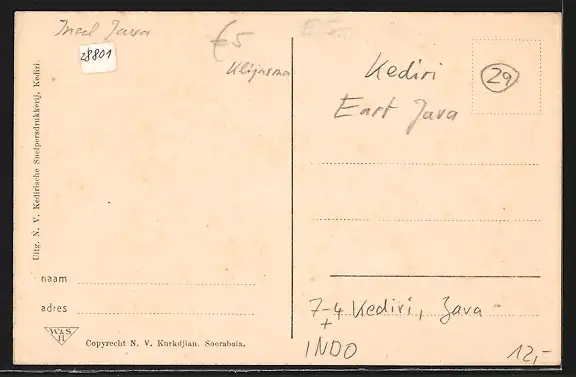 Java
28801
€5
Kediri
29
East Java
Uitg. N. V. Kedirische Snelpersdrukkerij, Kediri.
naam
adres
W&S
H
Copyrecht N. V. Kurkdjian. Soerabaia.
7-4 Kediri, Java
+
INDO
12,-